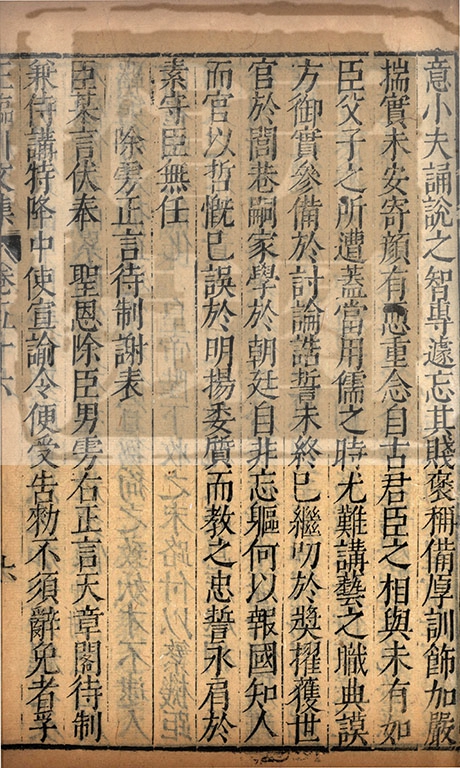 意小夫誦說之智專遽忘其賤褒稱備厚訓飭加嚴
揣實未安寄顔有忝重念自古君臣之相與未有如
臣父子之所遭蓋當用儒之時尤難講藝之職典謨
方御實參備於討論誥誓未終已繼叨於奬擢獲世
官於閭巷嗣家學於朝廷自非忘軀何以報國知人
而官以哲慨已誤於明揚委質而教之忠誓永肩於
素守臣無任
除雱正言待制謝表
臣某言伏奉 聖恩除臣男雱右正言天章閣待制
兼侍講特降中使宣諭令便受告勑不須辭免者孚
王臨川文集 卷五十六 六